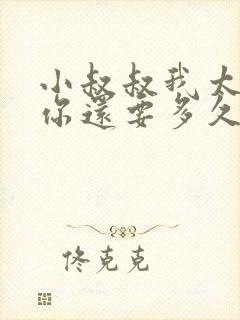 小叔叔我太
你還要多久
佟克克